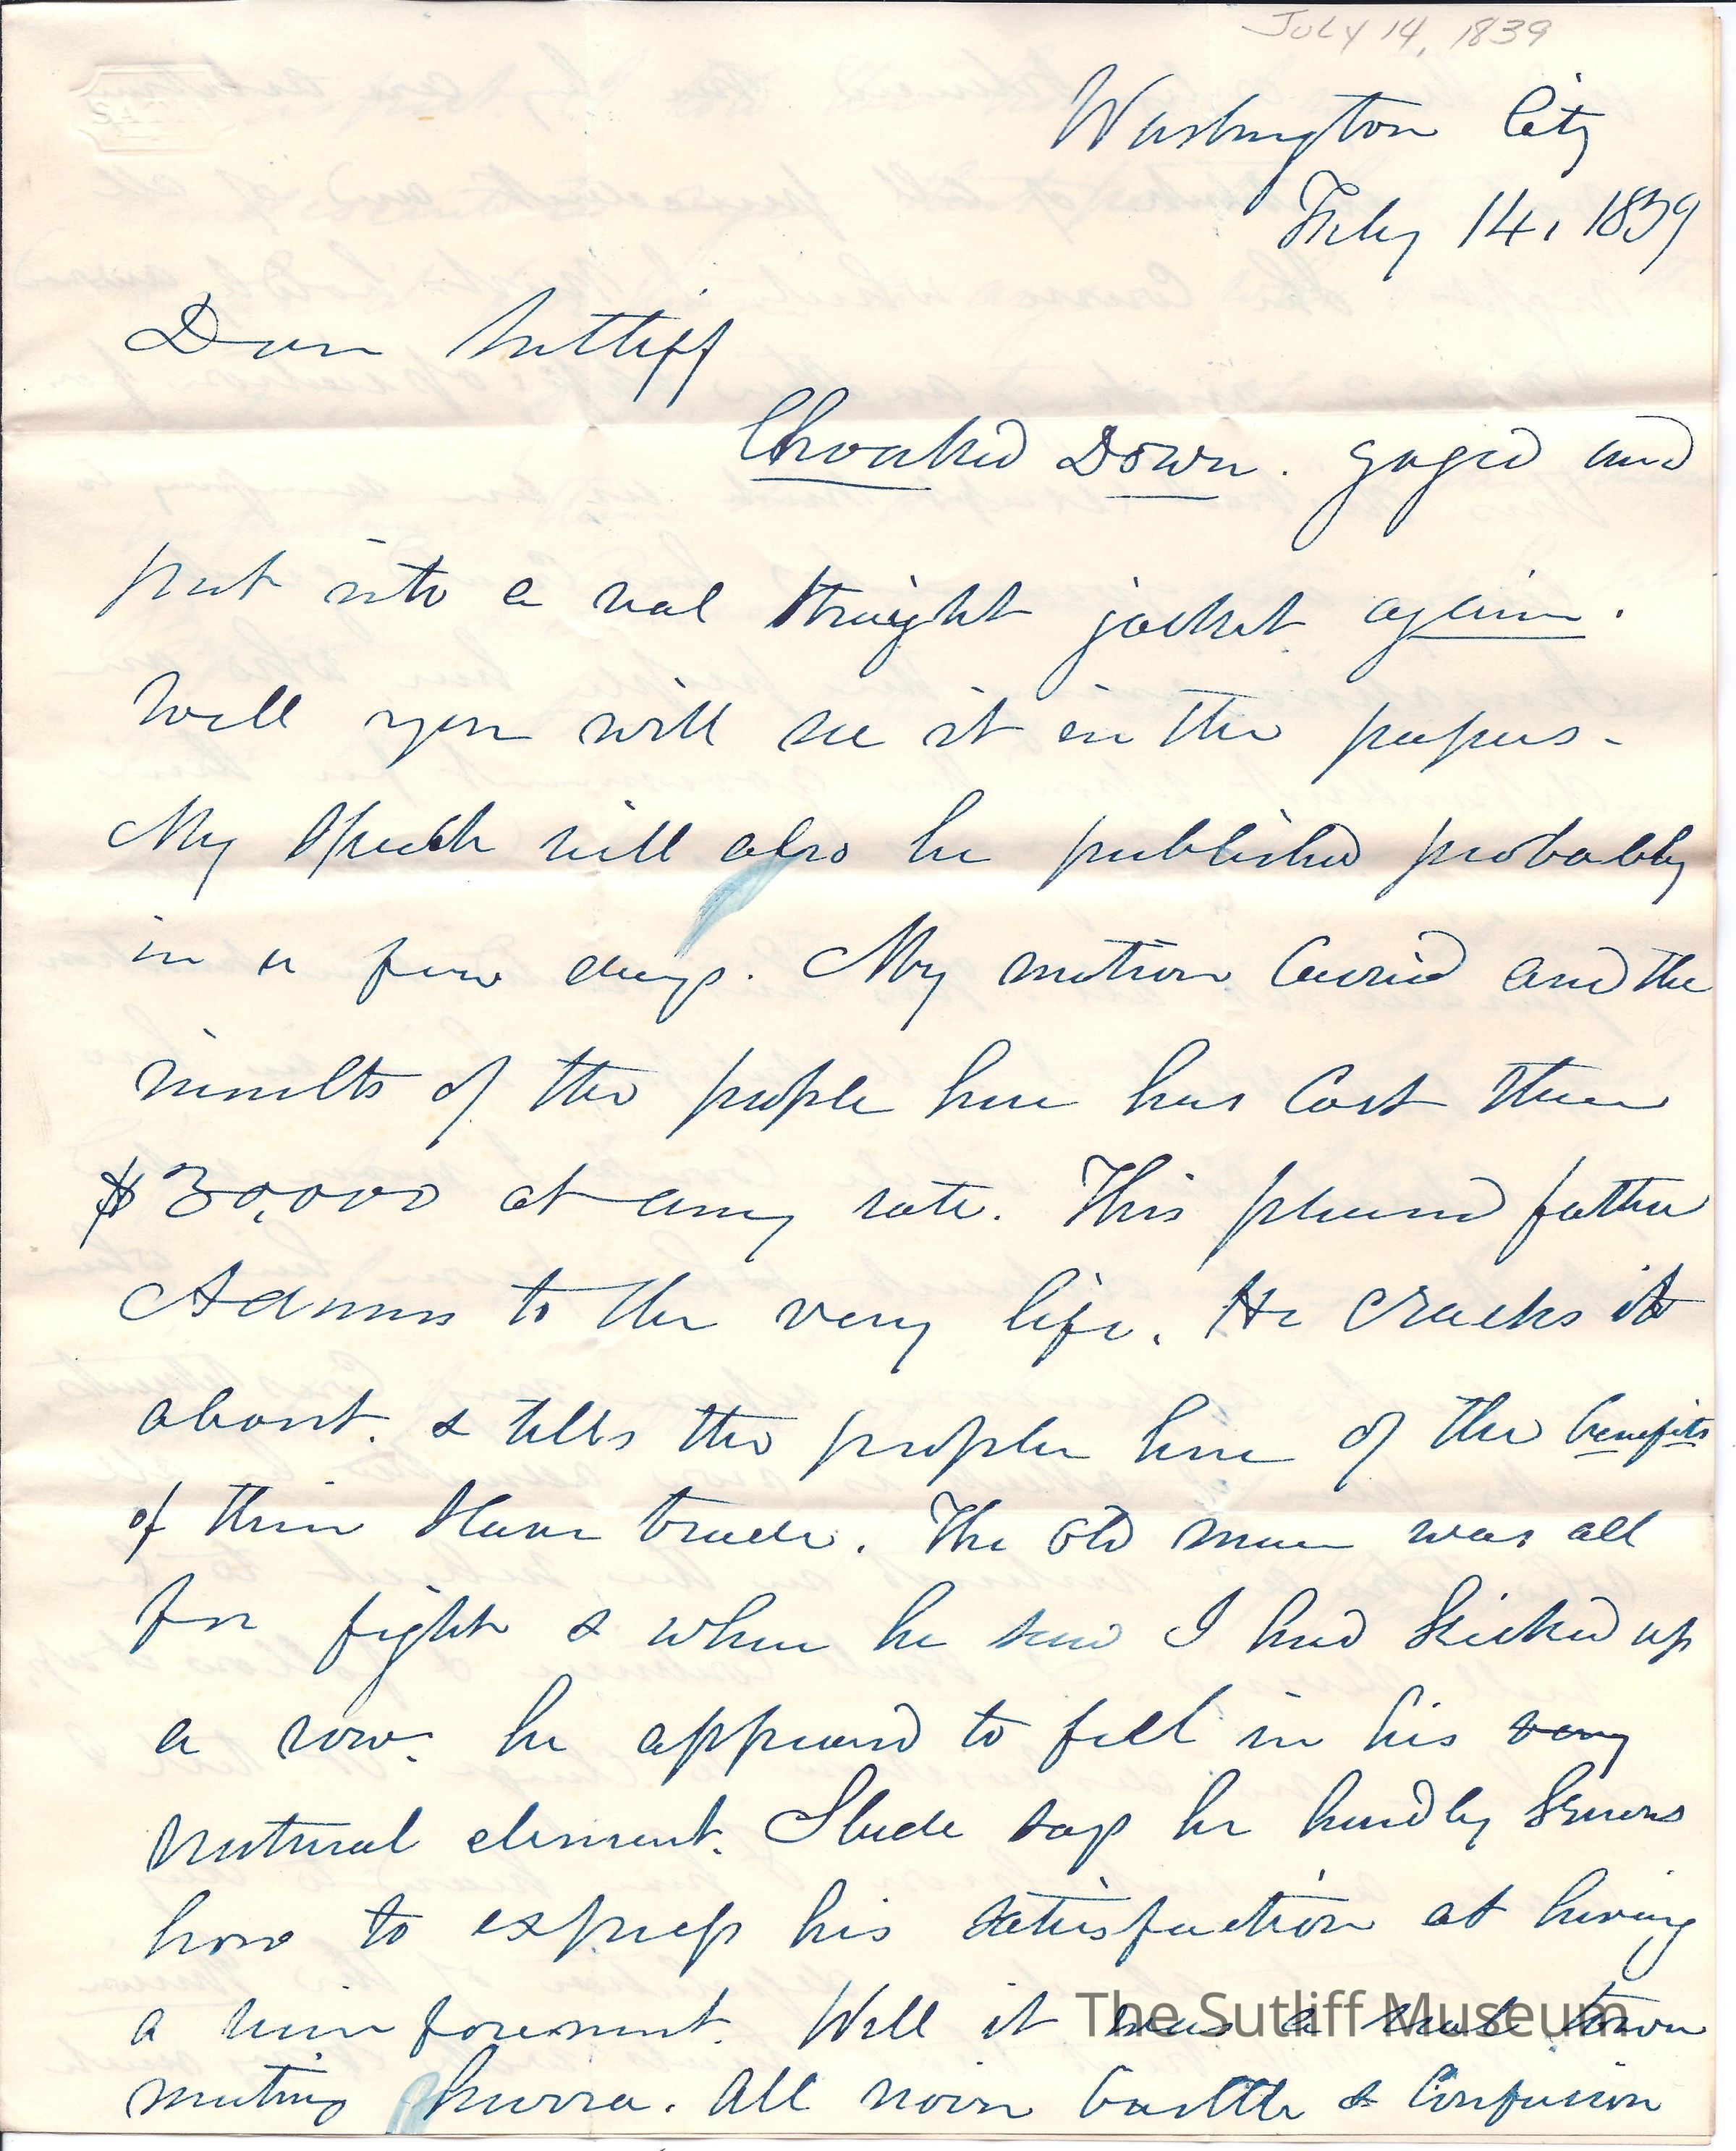 July 14, 1839
Washington City
Feby 14, 1839
Dear Sutliff
Choaked Down. gaged and
put into a real straight jacket again.
Well you will see it in the papers-
My Speech will also be published probably
in a few days. My motion Carried and the
insults of the people here has Cost them
$30,000 at any rate. This pleased father
Adams to the very life. He cracks it
about. & tells the people here of the benefits
of their Slave trade. The old man was all
for fight & when he saw I had kicked up
a row. he appeared to feel in his very
natural element. Slade says he hardly knows
how to express his satisfaction at having
a reinforcement. Well it was a real town
meeting hurra. All noise bustle & Confusion
The Sutliff Museum